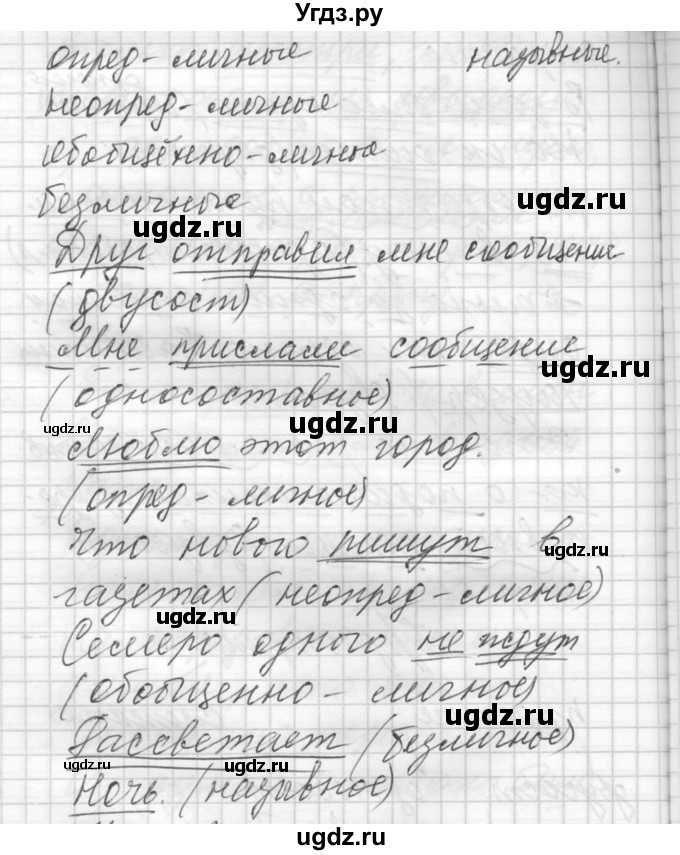 Угдз.ру
опред-личные назывные.
неопред-личные
обобщённо-личные
безличные
ugdz.ru
ugdz.ru
Друг отправил мне сообщение
ugdz.ru
(двусост)
Мне прислали сообщение
ugdz.ru
(односоставное)
ugdz.ru
ugdz.ru
Люблю этот город.
(опред-личное)
Что нового пишут в
ugdz.ru
газетах (неопред-личное)
ugdz.ru
Семеро одного не ждут
(обобщенно-личное)
ugdz.ru
Рассветает (безличное)
ugdz.ru
Ночь. (назывное)
ugdz.ru
ugdz.ru